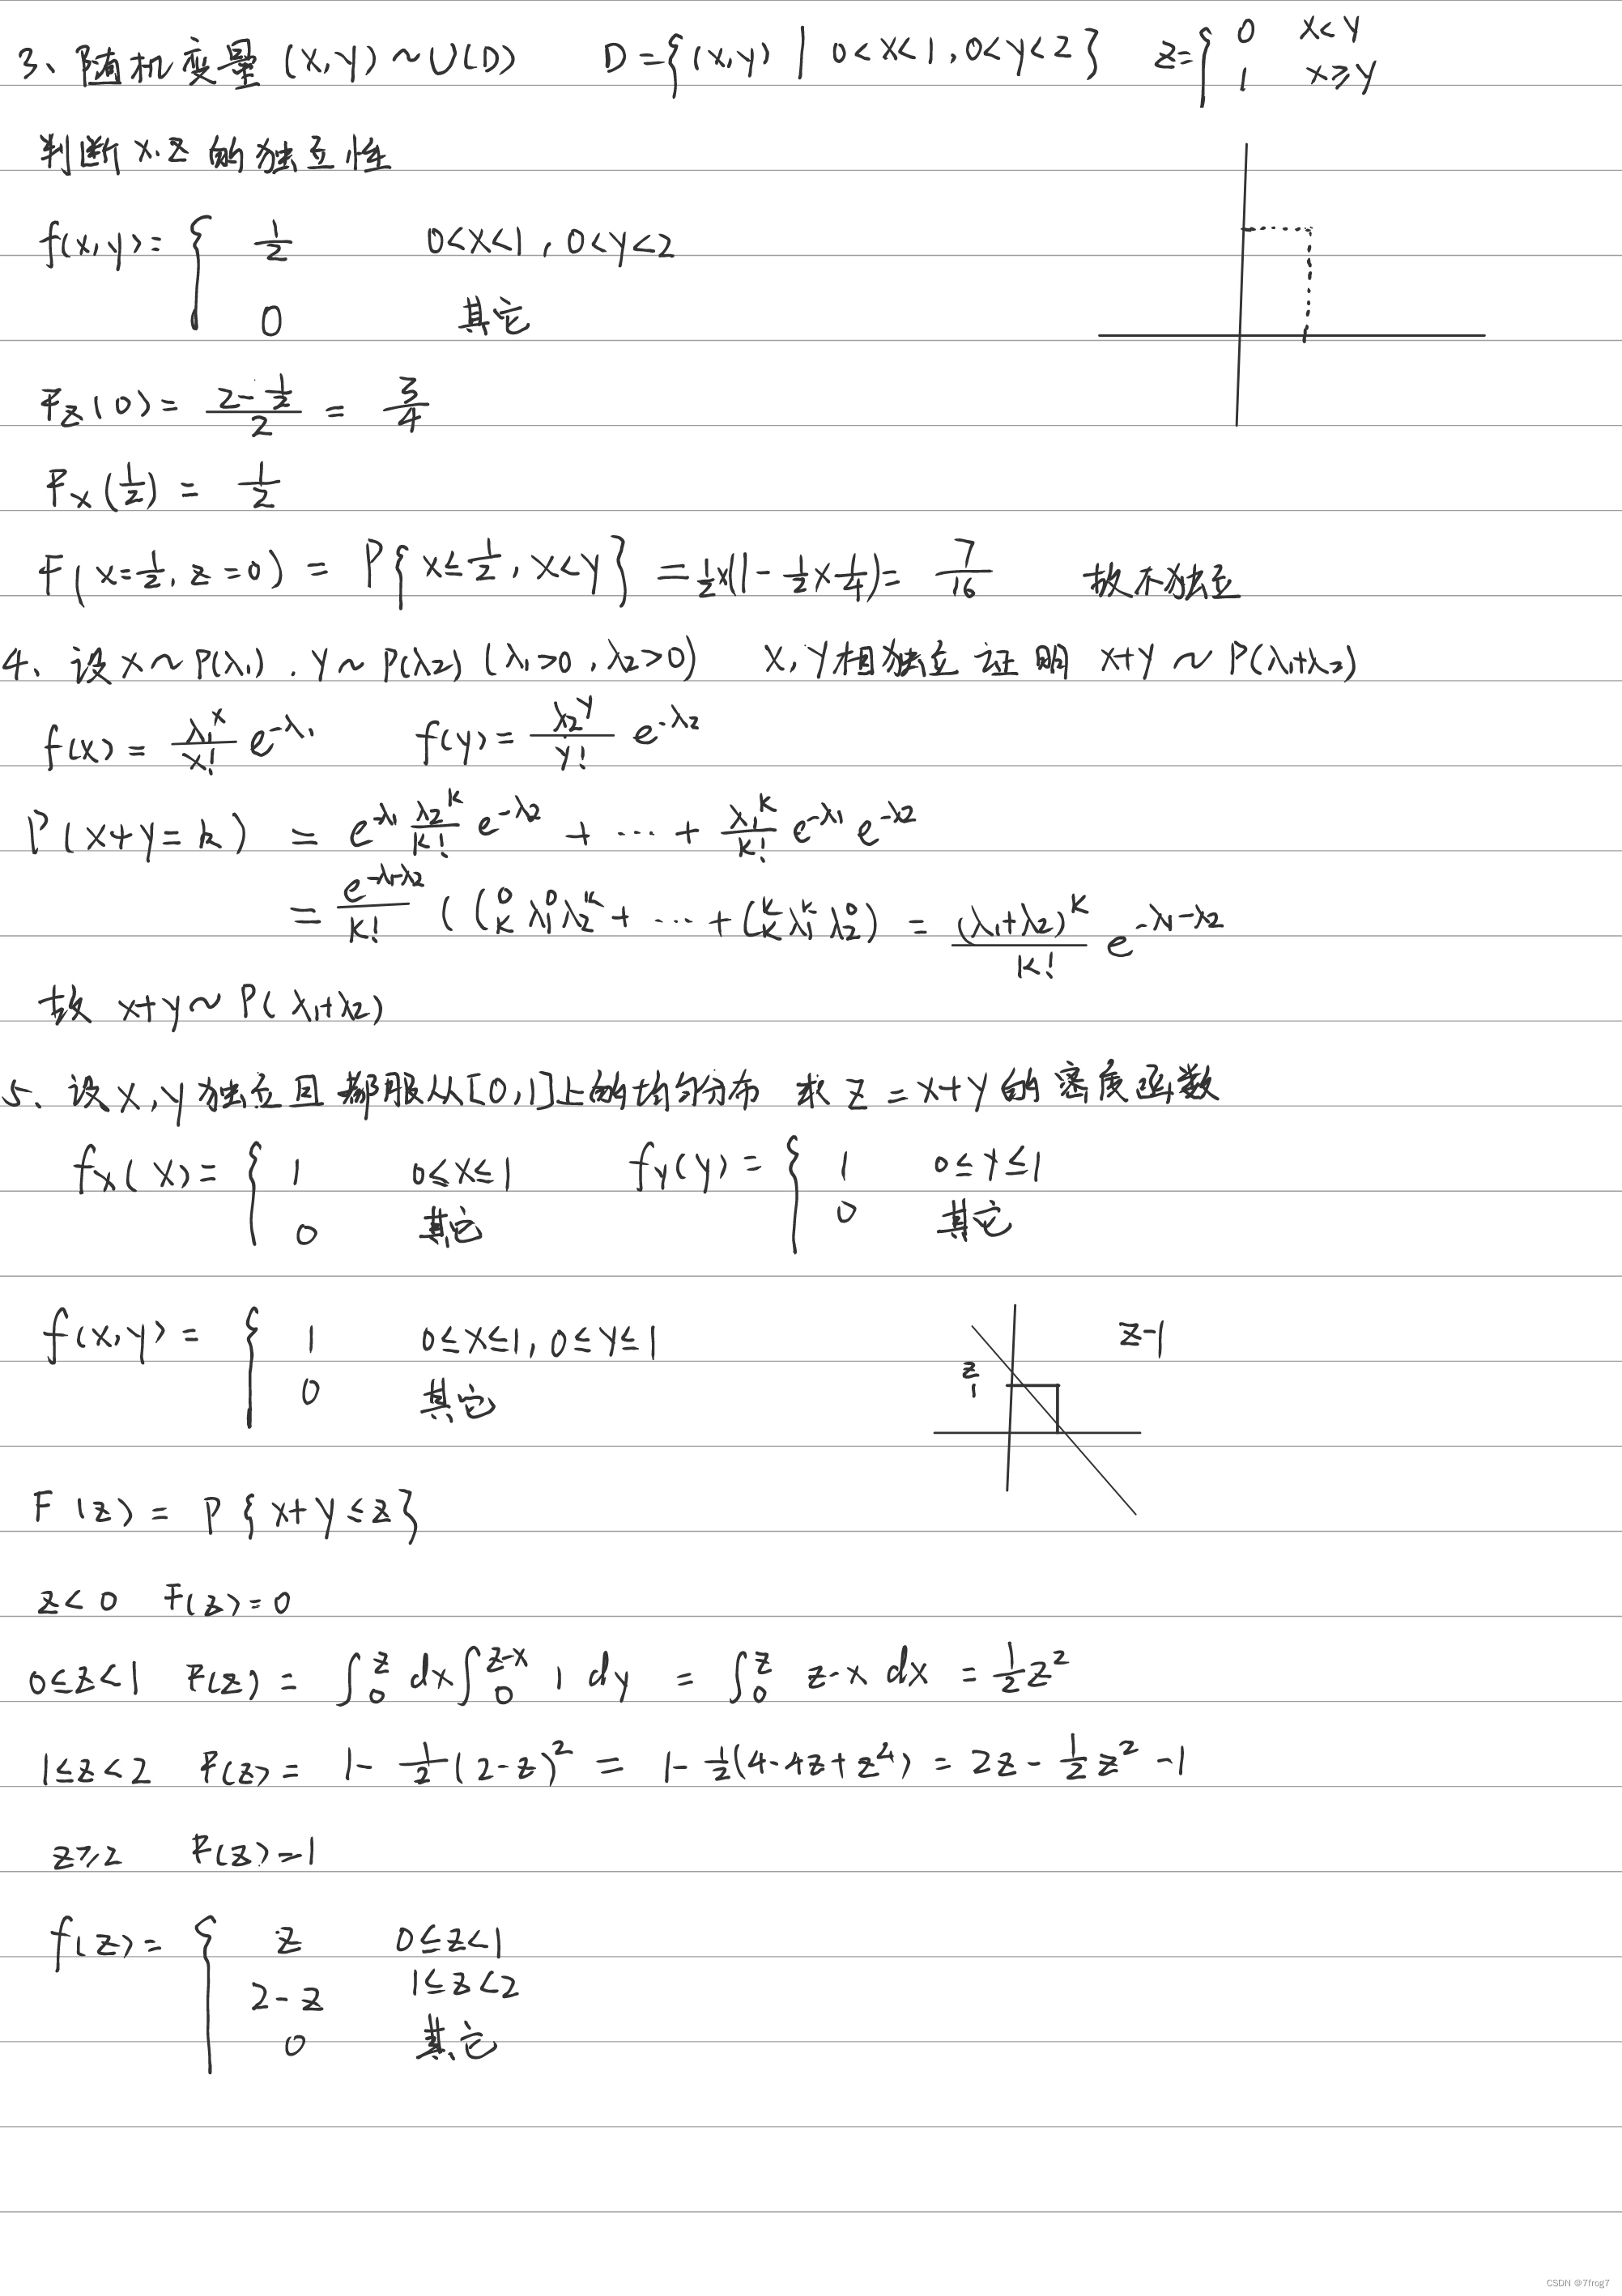 3、随机变量 (X,Y) ~ U(D)  D={(x,y) | 0<x<1, 0<y<2}  Z={ 0  X<Y
1  X≥Y
判断 X.Z 的独立性
f(x,y)= { 1/2  0<x<1, 0<y<2
0  其它
F_Z(0) = (2-1/2)/2 = 3/4
F_X(1/2) = 1/2
F(x=1/2, z=0) = P{X≤1/2, X<Y} = 1/2×(1-1/2×1/4) = 7/16  故不独立
4、设 X~P(λ1). Y~P(λ2) (λ1>0, λ2>0)  X,Y相独立 证明 X+Y ~ P(λ1+λ2)
f(x) = λ1^x/x! e^-λ1  f(y) = λ2^y/y! e^-λ2
P(X+Y=k) = e^-λ1 λ2^k/k! e^-λ2 + ... + λ1^k/k! e^-λ1 e^-λ2
= e^-λ1-λ2/k! ( (0 k λ1^0 λ2^k + ... + (k k λ1^k λ2^0) = (λ1+λ2)^k/k! e^-λ1-λ2
故 X+Y ~ P(λ1+λ2)
5、设 X,Y 独立且都服从[0,1]上的均匀分布 求 Z=X+Y 的密度函数
f_X(x)= { 1  0≤x≤1  f_Y(y)= { 1  0≤Y≤1
0  其它  0  其它
f(x,y) = { 1  0≤x≤1, 0≤Y≤1
0  其它
z-1
z
1
F(z) = P{X+Y≤z}
z<0  F(z)=0
0≤z<1  F(z) = ∫_0^z dx ∫_0^z-x 1 dy = ∫_0^z z-x dx = 1/2 z^2
1≤z<2  F(z) = 1-1/2(2-z)^2 = 1-1/2(4-4z+z^4) = 2z-1/2 z^2 -1
z≥2  F(z)=1
f(z)= { z  0≤z<1
2-z  1≤z<2
0  其它
CSDN @7frog7